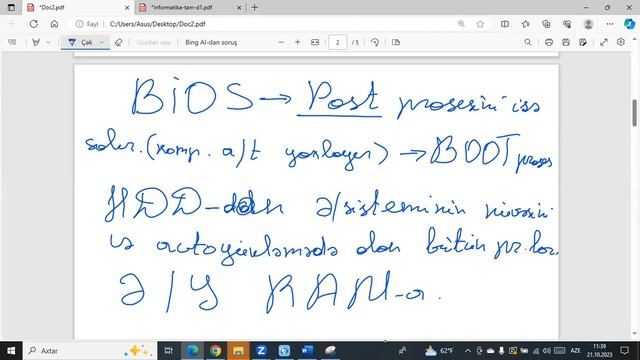 *Doc2.pdf
*Informatika-tam-d1.pdf
Fayl
C:/Users/Asus/Desktop/Doc2.pdf
Çək
Ucadan oxu
Bing AI-dan soruş
2
/5
BİOS → Post prosesini iss
salır. (komp. a/t yoxlayır) → BOOT proses
HDD-dən Ə/sisteminin nüvəsini
və avtoyüklәmәdә olan bütün pr.lar
Ə/Y RAM-a.
Axtar
62°F
AZE
11:39
21.10.2023